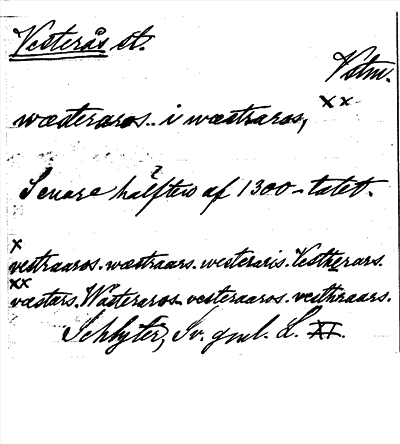 Vesterås st.
Vstm.
xx
wæsteraros.. i wæstraros,
Senare hälften af 1300-talet.
x
vestraaros. wæstraars. westeraris. Vestherars.
xx
væstars. Wasteraros. vesteraaros. vesthraars.
Schlyter, Sv. gml. L. XI.